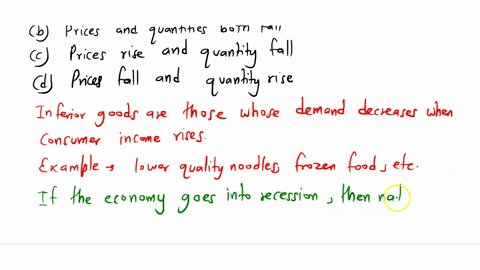 (b) Prices and quantities both fall
(c) Prices rise and quantity fall
(d) Prices fall and quantity rise
Inferior goods are those whose demand decreases when
consumer income rises.
Example → lower quality noodles, frozen food, etc.
If the economy goes into recession, then nat